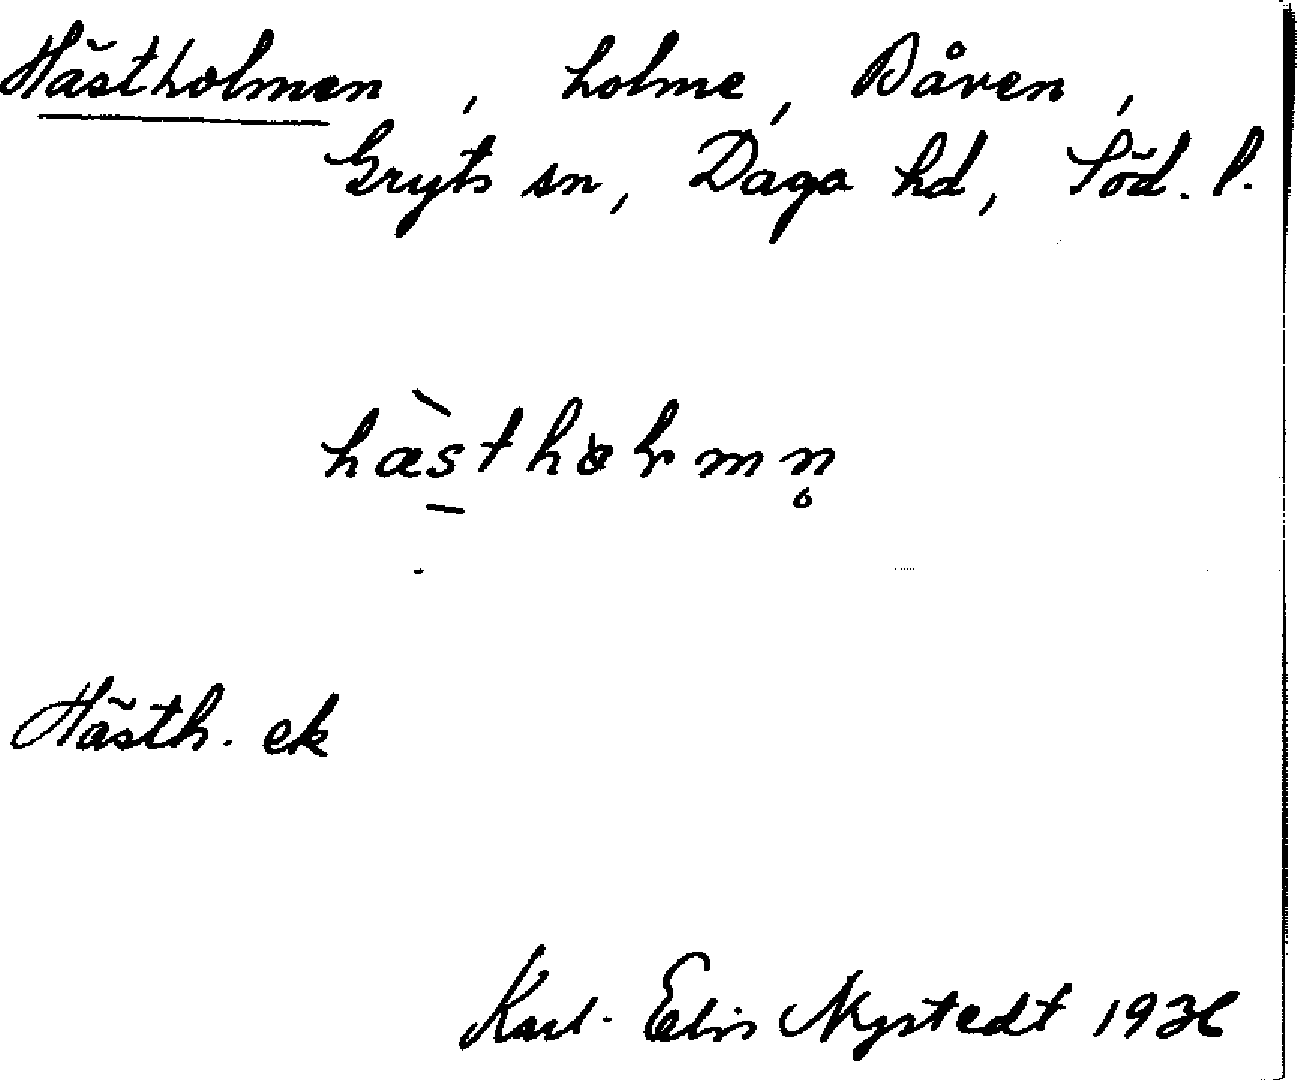 Hästholmen, holme, Båven,
Gryts sn, Daga hd, Söd. l.
hæ̀stholmn̥
Hästh. ek
Karl-Elis Nystedt 1936